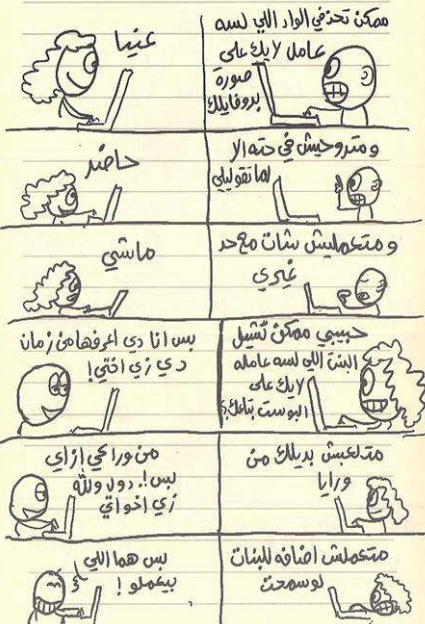 ممكن تحذفي الواد اللي لسه
عامل لايك على
صورة
بروفايلك
عنيا
ومتروحيش في حته الا
لما تقوليلي
حاضر
ومتعمليش شات مع حد
غيري
ماشي
حبيبي ممكن تشيل
البنت اللي لسه عامله
لايك على
البوست بتاعك؟
بس انا دي اعرفها من زمان
دي زي اختي!
متلعبش بديلك من
ورايا
من وراكي ازاي
بس!. دول والله
زي اخواتي
متعملش اضافه للبنات
لو سمحت
بس هما اللي
بيعملو!